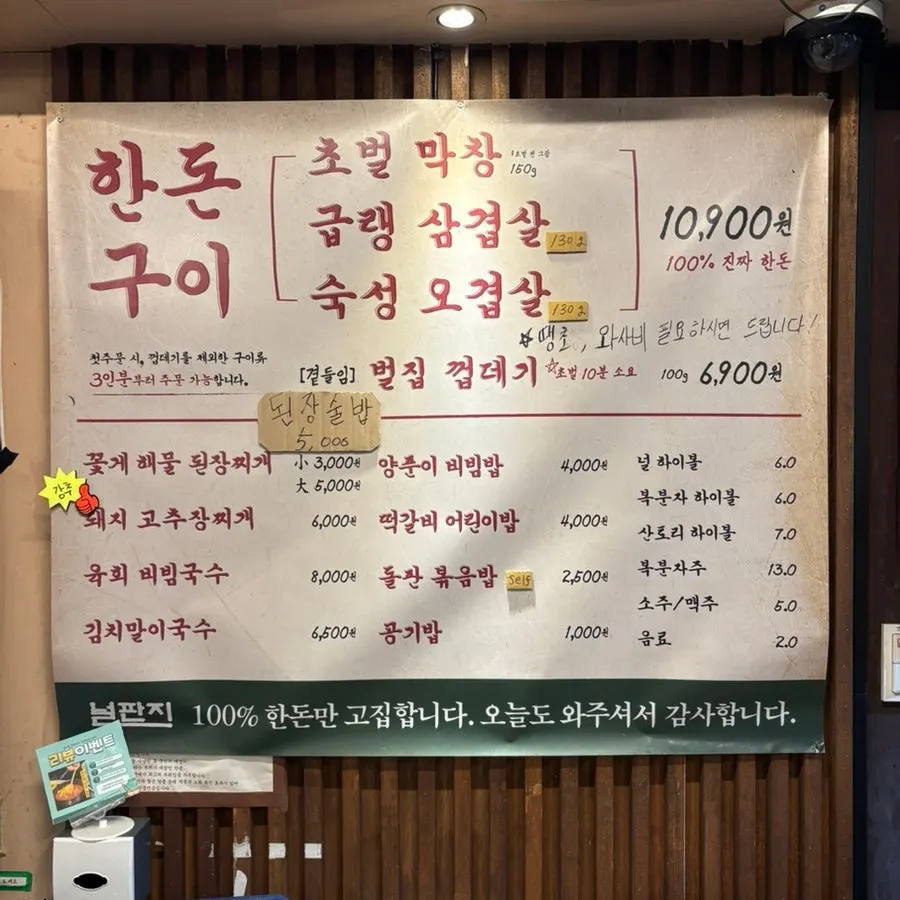 한돈
구이
초벌 막창 150g
급랭 삼겹살 130g
숙성 오겹살 130g
10,900원
100% 진짜 한돈
☆땡초, 와사비 필요하시면 드립니다!
첫주문 시, 껍데기를 제외한 구이류
3인분부터 주문 가능합니다.
[곁들임] 벌집 껍데기 ☆초벌 10분 소요 100g 6,900원
된장술밥
5,000
꽃게 해물 된장찌개 小 3,000원
大 5,000원
강추
돼지 고추장찌개 6,000원
육회 비빔국수 8,000원
김치말이국수 6,500원
양푼이 비빔밥 4,000원
떡갈비 어린이밥 4,000원
돌판 볶음밥 self 2,500원
공기밥 1,000원
널 하이볼 6.0
복분자 하이볼 6.0
산토리 하이볼 7.0
복분자주 13.0
소주/맥주 5.0
음료 2.0
널판지 100% 한돈만 고집합니다. 오늘도 와주셔서 감사합니다.
리뷰이벤트